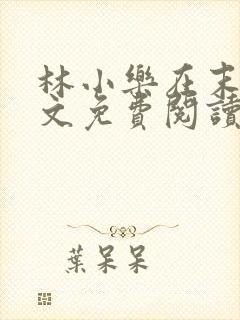 林小樂在末
文免費閱讀
葉呆呆